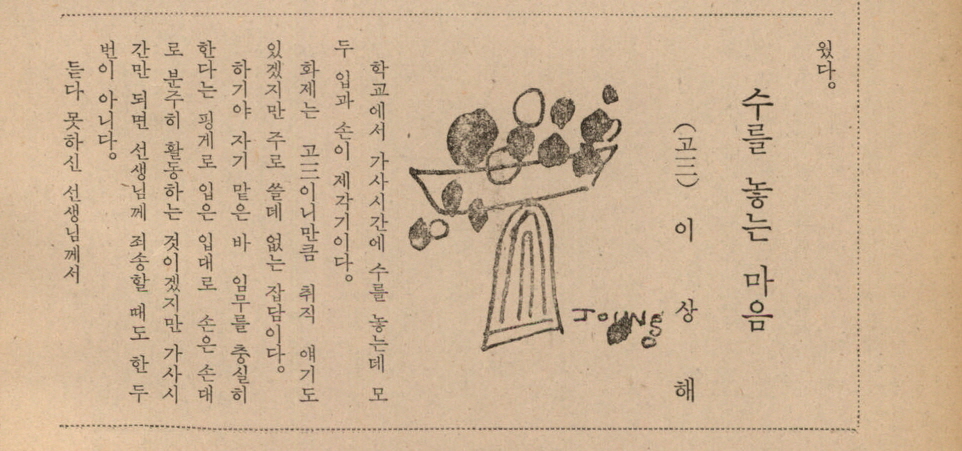 웠다。
수를 놓는 마음
(고三) 이상해
JOUNG
학교에서 가사시간에 수를 놓는데 모
두 입과 손이 제각기이다。
화제는 고三이니만큼 취직 얘기도
있겠지만 주로 쓸데 없는 잡담이다。
하기야 자기 맡은 바 임무를 충실히
한다는 핑게로 입은 입대로 손은 손대
로 분주히 활동하는 것이겠지만 가사시
간만 되면 선생님께 죄송할 때도 한 두
번이 아니다。
듣다 못하신 선생님께서